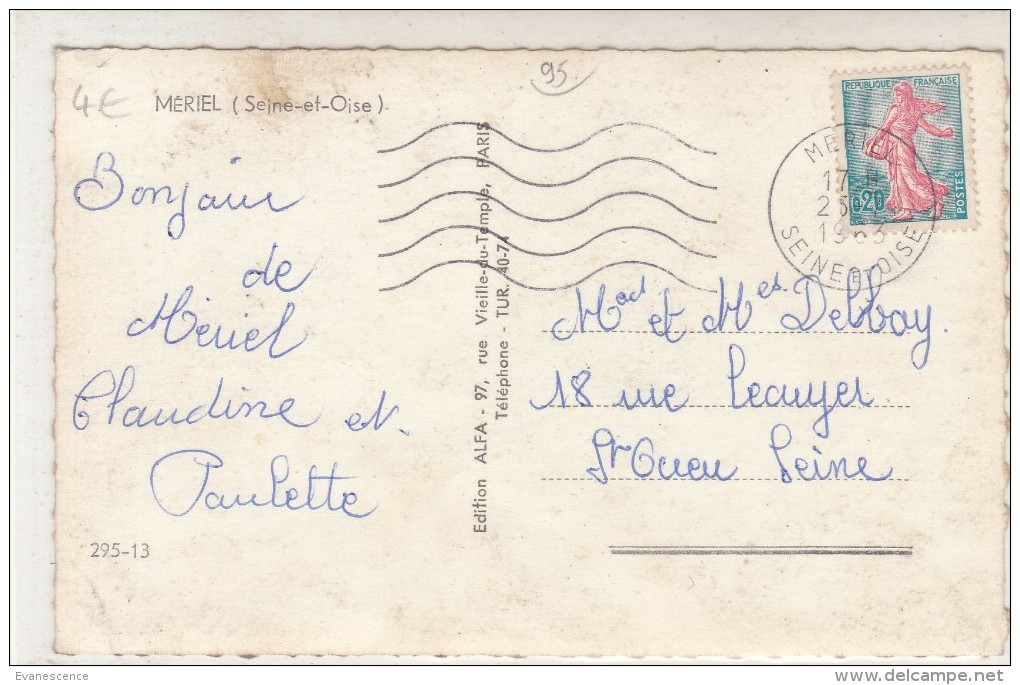 4€
MÉRIEL (Seine-et-Oise)
95
REPUBLIQUE FRANÇAISE
0,20
POSTES
MERIEL
17 H
1963
SEINE ET OISE
Bonjour
de
Mériel
Claudine et
Paulette
295-13
Edition ALFA - 97, rue Vieille-du-Temple, PARIS
Téléphone - TUR. 40-74
et Delbboy.
18 rue
St Ouen Seine
Evanescence
delcampe.net